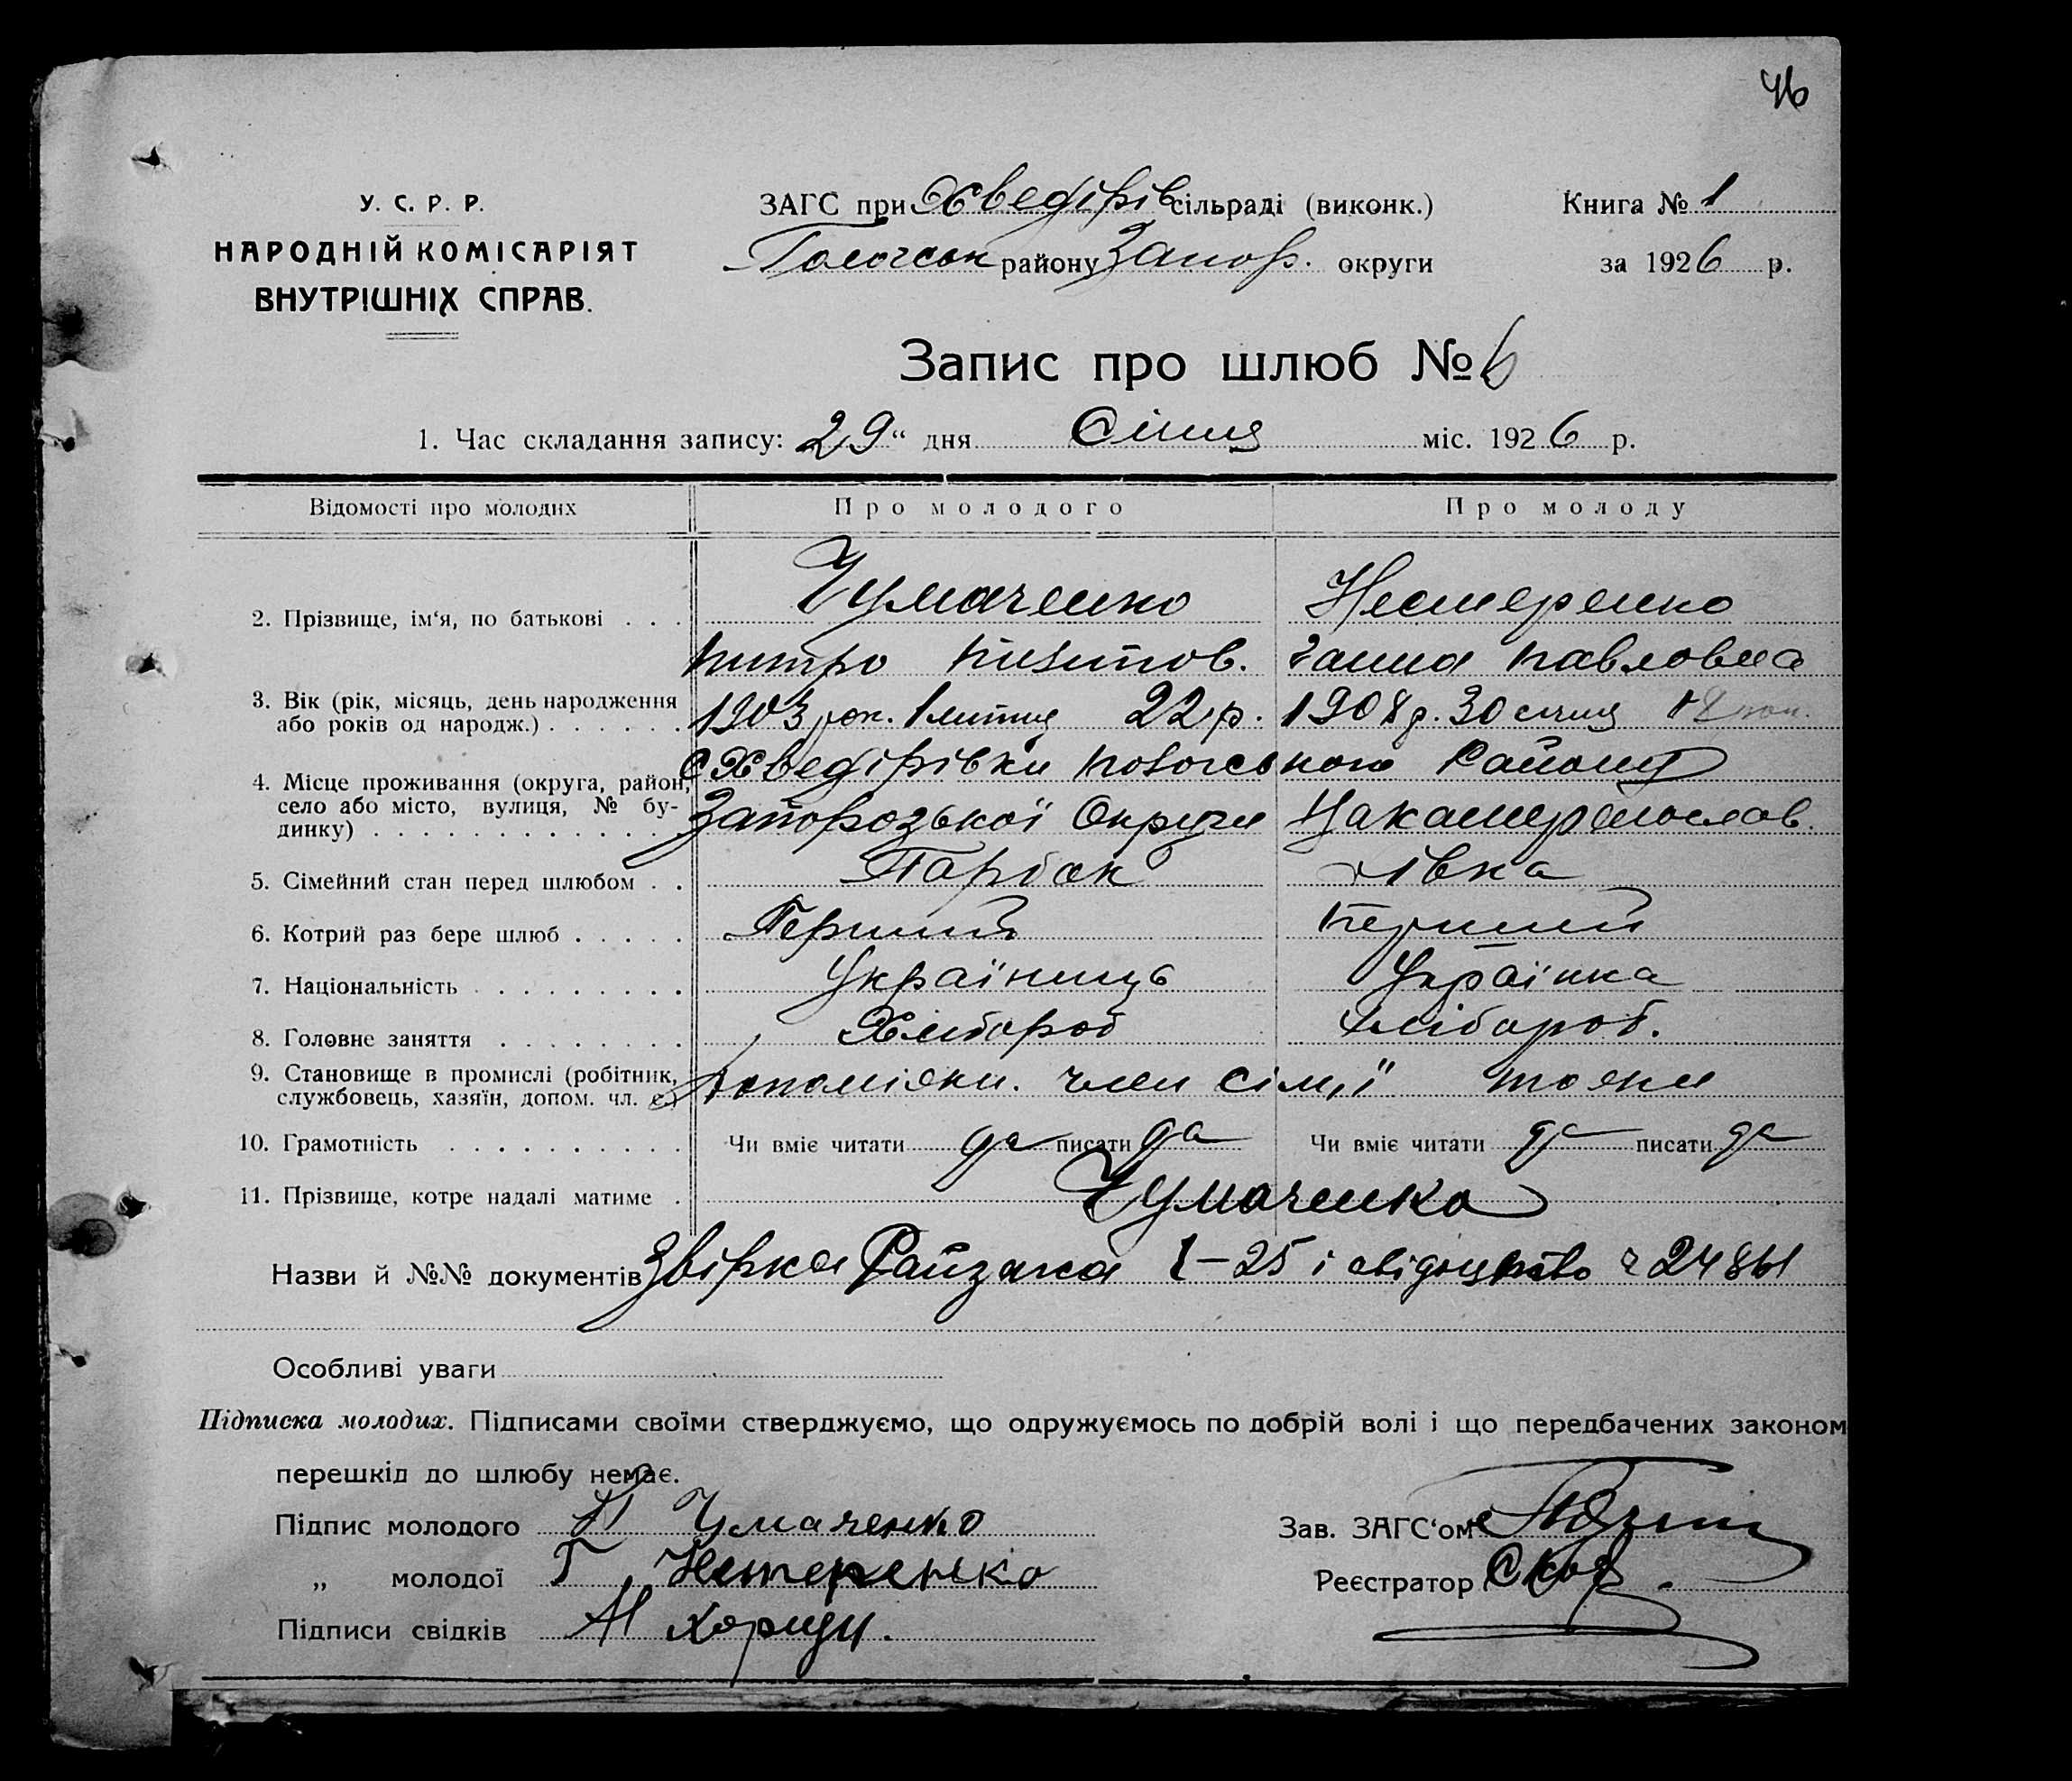 46
У. С. Р. Р.
НАРОДНІЙ КОМІСАРІЯТ
ВНУТРІШНІХ СПРАВ.
ЗАГС при Хведірів сільраді (виконк.)
району Запор. округи
Книга № 1
за 1926 р.
Запис про шлюб № 6
1. Час складання запису: 29 " дня Січня міс. 1926 р.
Відомості про молодих Про молодого Про молоду
2. Прізвище, ім'я, по батькові . . . Чумаченко Нестеренко
Питро Ганна Павловна
3. Вік (рік, місяць, день народження
або років од народж.) . . . . . . 1903 рок. 1 22 р. 1908 р. 30 січня 18
4. Місце проживання (округа, район, с Хведірівки району
село або місто, вулиця, № бу-
динку) . . . . . . . . . . . . . Запорозької Округи
5. Сімейний стан перед шлюбом . . Парубок Дівка
6. Котрий раз бере шлюб . . . . . Перший Перший
7. Національність . . . . . . . . . Українець Українка
8. Головне заняття . . . . . . . . Хлібороб Хлібороб.
9. Становище в промислі (робітник,
службовець, хазяїн, допом. чл. с.) член сім'ї
10. Грамотність . . . . . . . . . . Чи вміє читати да писати да Чи вміє читати да писати да
11. Прізвище, котре надалі матиме . Чумаченко
Назви й №№ документів Звірка Райзага 1–25 і свідоцтво
Особливі уваги
Підписка молодих. Підписами своїми стверджуємо, що одружуємось по добрій волі і що передбачених законом
перешкід до шлюбу немає.
Підпис молодого П Чумаченко Зав. ЗАГС'ом
„ молодої Г Нестеренко Реєстратор
Підписи свідків